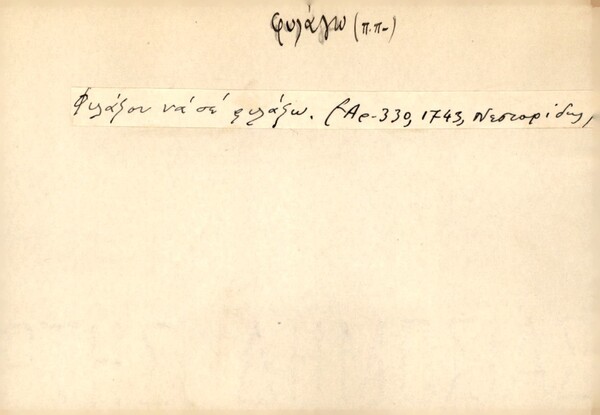 φυλάγω (π.π.-)
Φυλάξου νά σέ φυλάξω. (Αρ-330, 1743, Νεστορίδης,